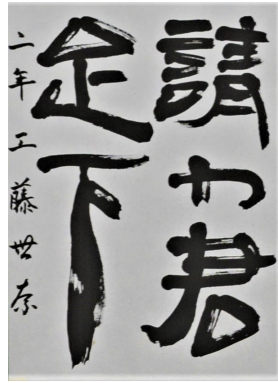 請君
足下
二年 工藤世奈